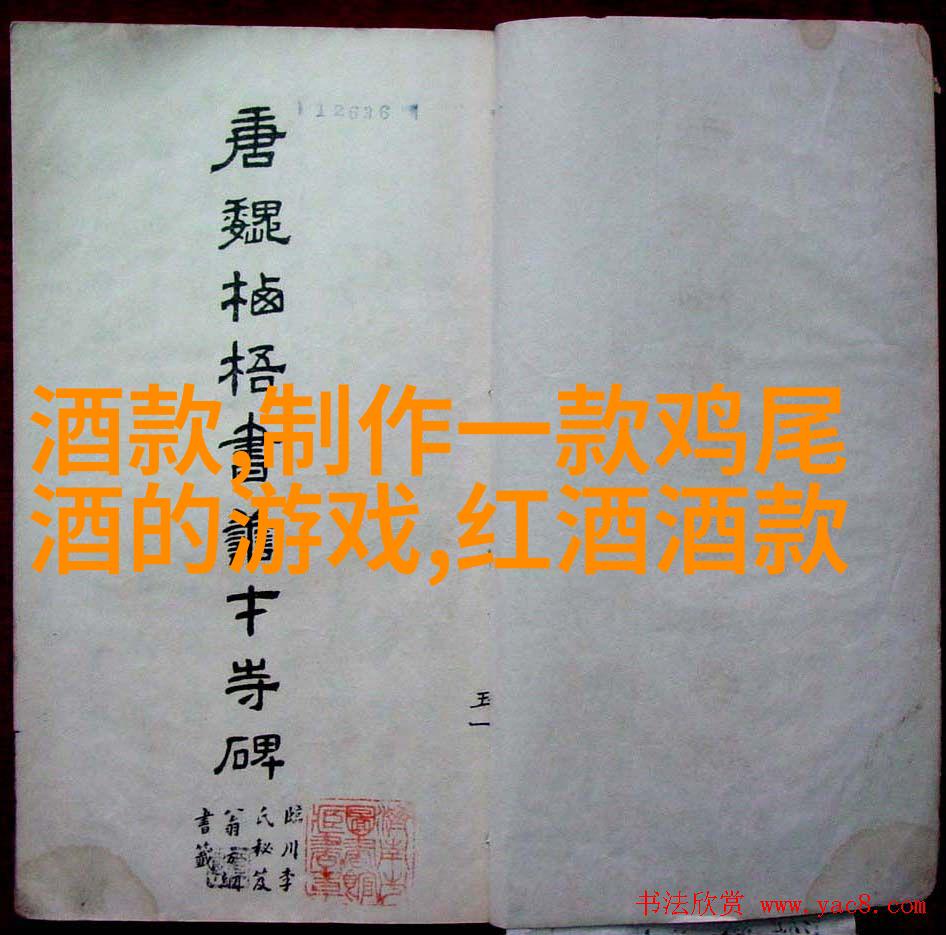 12636
唐魏栖梧書譱才寺碑
臨川李
氏秘笈
翁方綱
書籤
王一
酒款,制作一款鸡尾
酒的游戏,红酒酒款
书法欣赏 www.yac8.com